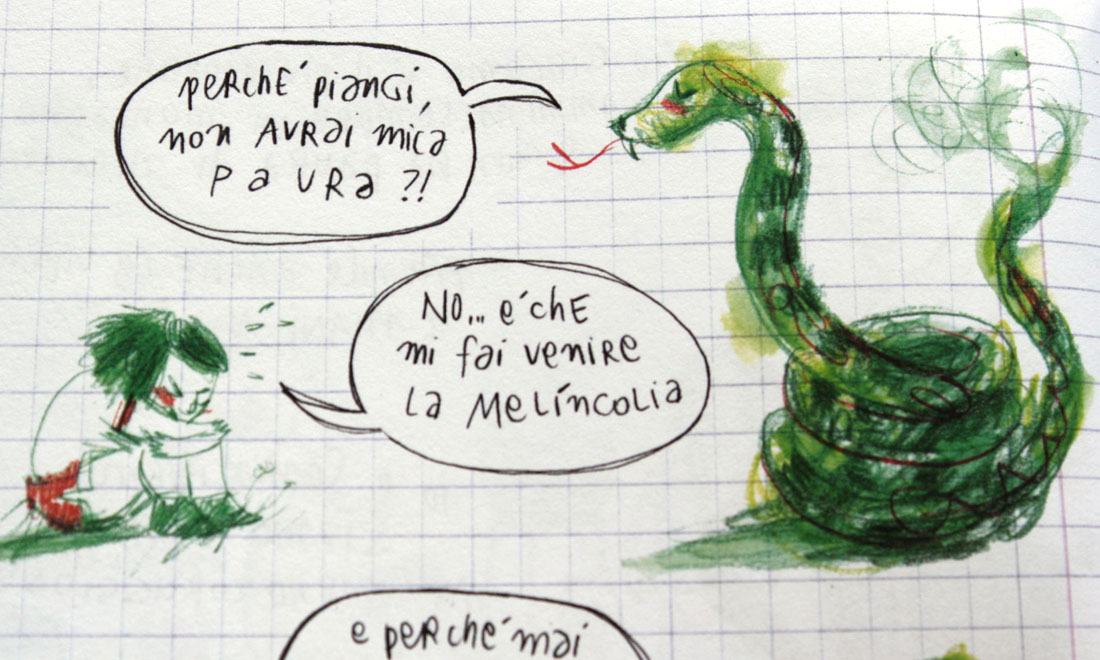 PERCHÉ PIANGI,
NON AVRAI MICA
PAURA ?!
NO... E' CHE
MI FAI VENIRE
LA MELÍNCOLIA
E PERCHÉ MAI